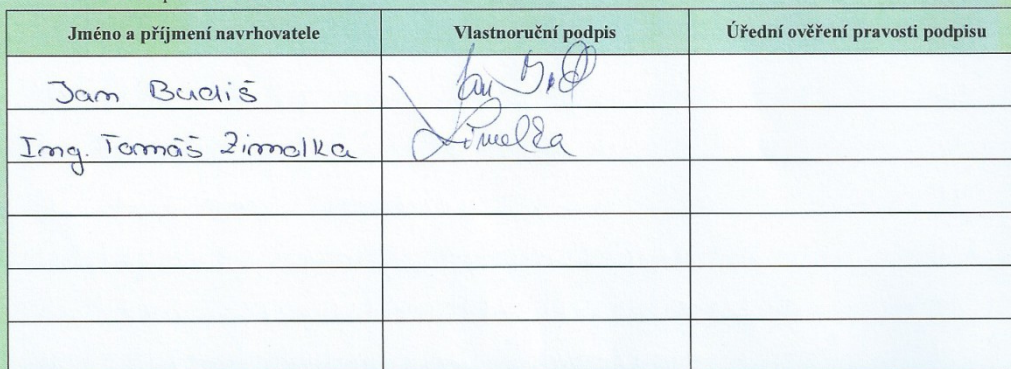 Jméno a příjmení navrhovatele Vlastnoruční podpis Úřední ověření pravosti podpisu
Jan Budiš Jan
Ing. Tomáš Zimolka Zimolka